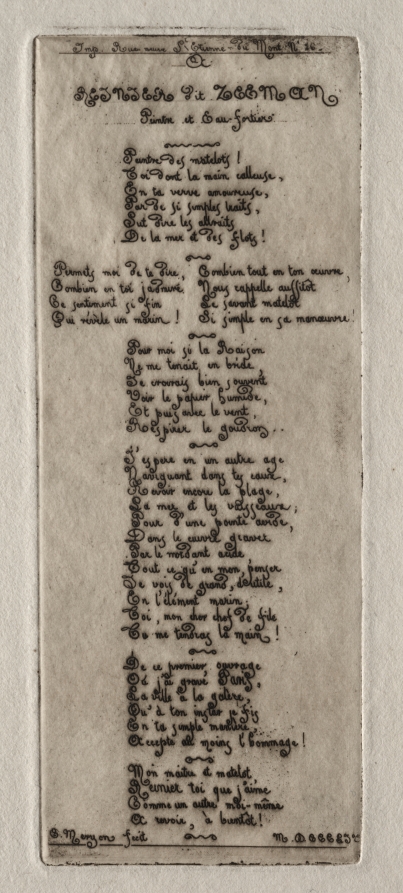 Imp. Rue neuve St Etienne-du-Mont No 26.
A
REINIER dit ZEEMAN
Peintre et Eau-fortier.
Peintre des matelots !
Toi dont la main calleuse,
En ta verve amoureuse,
Par de si simples traits,
Sut dire les attraits
De la mer et des flots !
Permets moi de te dire,
Combien en toi j'admire
Ce sentiment si fin
Qui révèle un marin !
Combien tout en ton œuvre,
Nous rappelle aussitot
Le savant matelot
Si simple en sa manœuvre !
Pour moi si la Raison
Ne me tenait en bride,
Je croirais bien souvent
Voir le papier humide,
Et puis avec le vent,
Respirer le goudron . .
J'espere en un autre age
Naviguant dans tes eaux,
Revoir encore la plage,
La mer et les vaisseaux ;
Pour d'une pointe avide,
Dans le cuivre graver
Par le mordant acide
Tout ce qu'en mon penser
Je vois de grand,
En l'élément marin.
Toi, mon cher chef de file
Tu me tendras la main !
De ce premier ouvrage
Où j'ai gravé Paris,
La ville à la galère,
Qu'à ton instar je fis
En ta simple manière
Accepte au moins l'hommage !
Mon maître et matelot,
Reinier toi que j'aime
Comme un autre moi-même
A revoir, à bientôt !
C. Meryon fecit
M. DCCCLIV